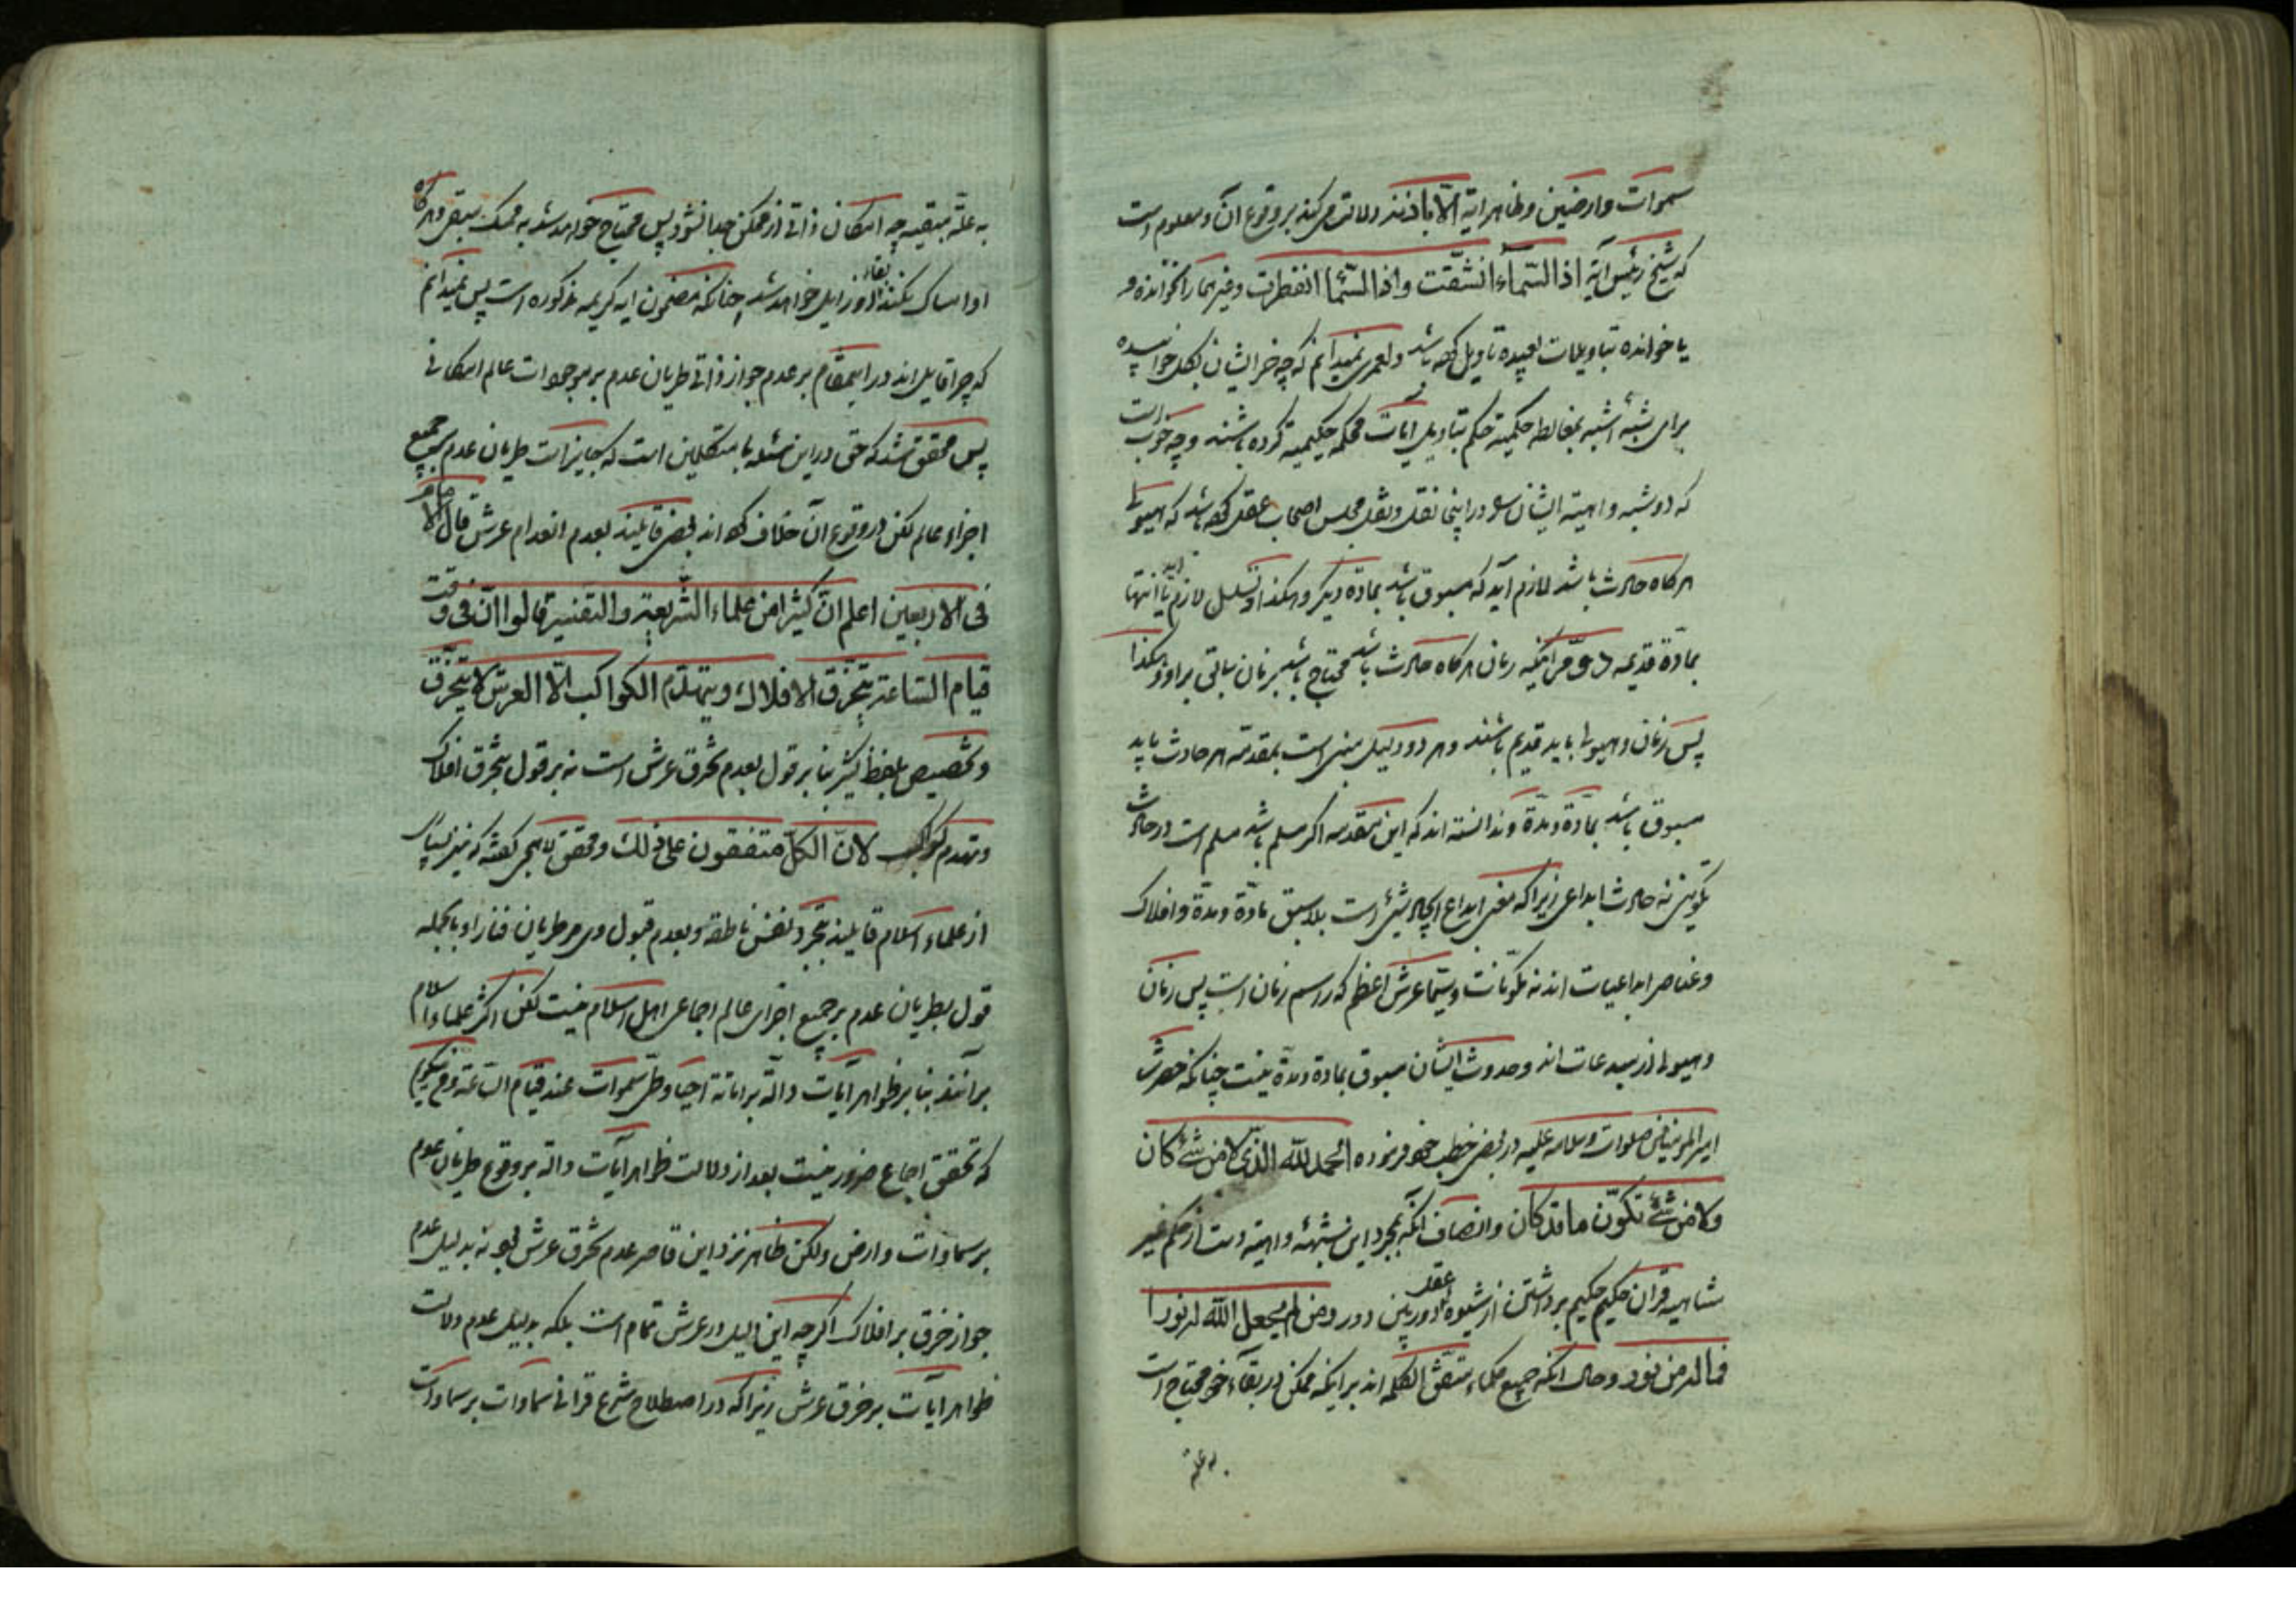 سموات وارضین وظاهر ایة الّا باذنه دلالت می کند بر وقوع آن ومعلوم است
که شیخ رئیس آیة اذا السّمآء انشقّت واذا السّمآ انفطرت وغیرهما را نخوانده و
یا خوانده بتاویلات بعیده تاویل کرده باشد ولعمری نمیدانم که چه خر ایشان بکل خوابیده
برای شبهٔ اشبه بمغالطه حکمیة حکم بتاویل آیات محکمه حکیمیة کرده باشند وچه خوبست
که دو شبه واهیة ایشان را در اینجا نقل ونقل مجلس اصحاب عقل کرده باشد که هیولی
هرکاه حادث باشد لازم آید که مسبوق باشد بماده دیکر وهکذا وتسلسل لازم آید یا انتها
بمادّة قدیمه دوّم اینکه زمان هرکاه حادث باشد محتاج باشد بزمان سابق بر او وهکذا
پس زمان وهیولی باید قدیم باشند وهر دو دلیل مبنی است بمقدمه هر حادث باید
مسبوق باشد بمادّة ومدّة وندانسته اند که این مقدمه اکر مسلم باشد مسلم است در حادث
تکوینی نه حادث ابداعی زیرا که معنی ابداع ایجاد شیئ است بلا سبق مادّة ومدّة وافلاک
وعناصر ابداعیات اند نه مکوّنات وسیّما عرش اعظم که راسم زمان است پس زمان
وهیولی از مبدعات اند وحدوث ایشان مسبوق بماده ومدّة نیست چنانکه حضرت
امیر المؤمنین صلوات وسلامه علیه در بعض خطب خود فرموده الحمد للّه الّذی لا من شئ کان
ولا من شئ تکوّن ما قد کان وانصاف آنکه بمجرد این شبهه واهیه دست از حکم غیر
متشابه قران حکیم حکیم برداشتن از شیوه عقد دور بین دور ومن لم یجعل اللّه له نورا
فما له من نور وحال آنکه جمیع حکماء متفق الکلمه اند بر اینکه ممکن در بقاء خود محتاج است
به علة
به علّة مبقیه چه امکان ذاتی از ممکن جدا نشود پس محتاج خواهد شد به ممسک مبقی وهرکاه
او امساک نکند بقاء او زایل خواهد شد چنانکه مضمون ایه کریمه مذکوره است پس نمیدانم
که چرا قایل اند در اینمقام بر عدم جواز ذاتی طریان عدم بر موجودات عالم امکانی
پس محقق شد که حق در این مسئله با متکلمین است که جایز است طریان عدم بر جمیع
اجزاء عالم لکن در وقوع آن خلاف کرده اند بعض قایلند بعدم انعدام عرش قال الامام
فی الاربعین اعلم انّ کثیرا من علماء الشّریعة والتفسیر قالوا انّ فی وقت
قیام السّاعة یتخرّق الافلاک ویتهدّم الکواکب الّا العرش لا یتخرّق
وتخصیص بلفظ کثیر بنا بر قول بعدم تخرق عرش است نه بر قول بتخرق افلاک
وتهدم کواکب لانّ الکلّ متفقون علی ذلک ومحقق لاهجی کفته که نیز بسیاری
از علماء اسلام قایلند بتجرد نفس ناطقه وبعدم قبول وی مر طریان فنا را وبالجمله
قول بطریان عدم بر جمیع اجزای عالم اجماعی اهل اسلام نیست لکن اکثر علماء اسلام
برآنند بنا بر ظواهر آیات دالّه بر اماتة احیا وطی سموات عند قیام السّاعة ومی کویم
که تحقق اجماع ضرور نیست بعد از دلالت ظواهر آیات دالّه بر وقوع طریان عدم
بر سماوات وارض ولکن ظاهر نزد این قاصر عدم تخرق عرش بود نه بدلیل عدم
جواز خرق بر افلاک اکرچه این دلیل در عرش تمام است بلکه بدلیل عدم دلالت
ظواهر آیات بر خرق عرش زیرا که در اصطلاح شرع قرانی سماوات بر سماوات